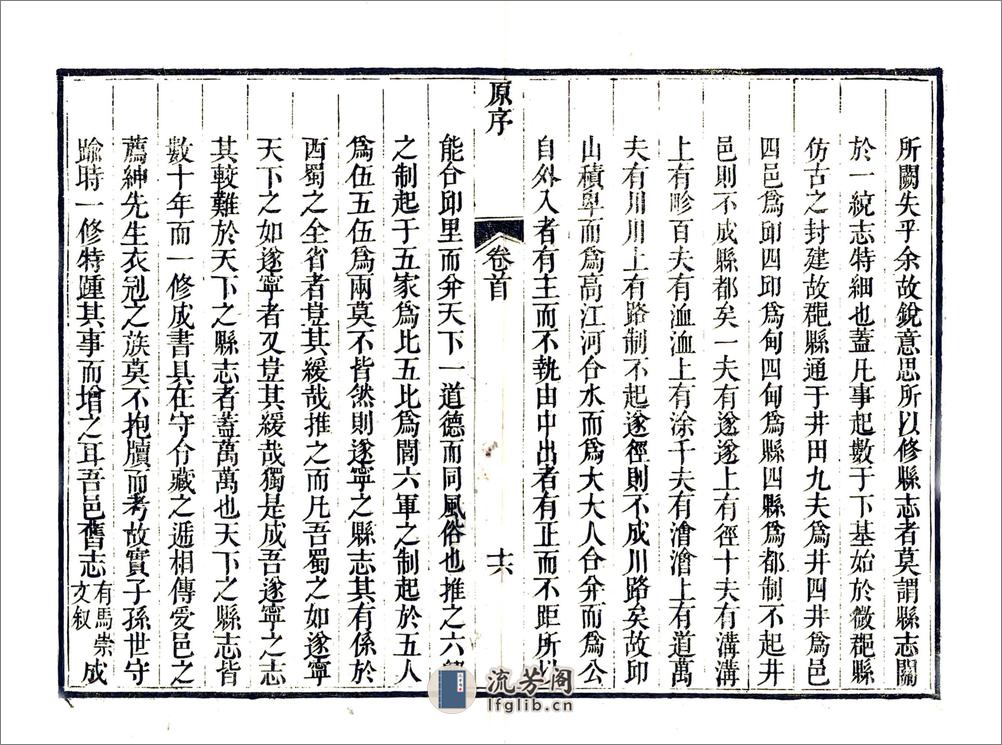 所闕失乎余故銳意思所以修縣志者莫謂縣志關
於一統志特細也蓋凡事起數于下基始於微郡縣
仿古之封建故郡縣通于井田九夫爲井四井爲邑
四邑爲邱四邱爲甸四甸爲縣四縣爲都制不起井
邑則不成縣都矣一夫有遂遂上有徑十夫有溝溝
上有畛百夫有洫洫上有涂千夫有澮澮上有道萬
夫有川川上有路制不起遂徑則不成川路矣故邱
山積卑而爲高江河合水而爲大大人合幷而爲公
自外入者有主而不執由中出者有正而不距所以
原序
卷首
十六
能合邱里而幷天下一道德而同風俗也推之六鄉
之制起于五家爲比五比爲閭六軍之制起於五人
爲伍五伍爲兩莫不皆然則遂寧之縣志其有係於
西蜀之全省者豈其緩哉推之而凡吾蜀之如遂寧
天下之如遂寧者又豈其緩哉獨是成吾遂寧之志
其較難於天下之縣志者蓋萬萬也天下之縣志皆
數十年而一修成書具在守令藏之遞相傳愛邑之
薦紳先生衣冠之族莫不抱牘而考故實子孫世守
踰時一修特踵其事而增之耳吾邑舊志有馬崇文叙成
流芳阁
lfglib.cn